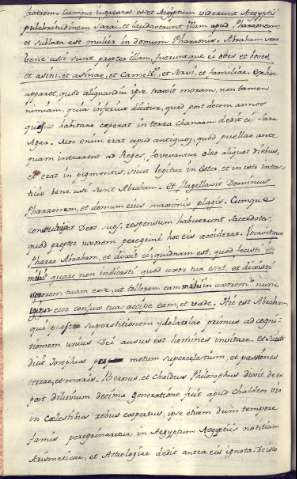 itaque cumque ingressus est in Aegyptum viderunt Aegyptii
pulchritudinem Sarai, et laudaverunt illam apud Pharaonem
et sublata est mulier in domum Pharaonis. Abraham vero
bene usi sunt propter illam, fueruntque ei oves et boves
et asini, et asinae, et Cameli, et servi, et familiae. Ex hoc
apparet, quod aliquandiu ipse traxit moram, non tamen
nimiam, quia inferius dicitur, quod post decem annos
quam habitare coeperat in terra Chanaam dedit ei Sara
Agar. Mos enim erat apud antiquos, quod puellae ante
quam intrarent ad Reges, fovebantur oleo aliquot diebus,
et erat in pigmentis, sicut legitur in Ester, et in isto inter
bene usi sunt Abraham. et flagellavit Dominus
Pharaonem, et domum eius maximis plagis. Cumque
Deos suos, responsum habuerunt Sacerdotes,
quod propter uxorem peregrini hoc eis acciderat. Vocavitque
Pharao Abraham, et dixit ei quidnam est, quod fecisti
mihi quare non indicasti quod uxor tua erat, et dixisti
sororem tuam esse, ut tollerem eam mihi in uxorem nunc
igitur ecce coniux tua accipe eam, et vade. Hic est Abraham
qui post superstitionem ydolatriae primus ad cogni
tionem unius Dei ausus est homines invitare, et sicut
dicit Josephus motum supercaelestium, et passiones
terrae, et maris. Berosus, et Chaldeus Philosophus dicit de eo
post diluvium decima generatione fuit apud Chaldeos vir
in Caelestibus rebus expertus, ipse etiam dum tempore
famis peregrinaretur in Aegyptum Aegyptiis notitiam
Arismeticae, et Astrologiae dedit antea eis ignota.